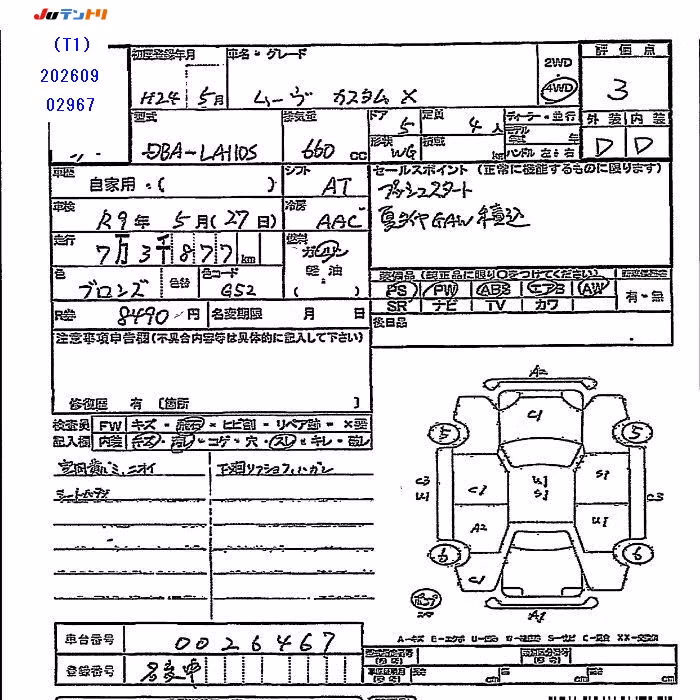 JUテントリ
(T1)
202609
02967
初度登録年月
H24 5月
車名・グレード
ムーヴ カスタム X
2WD
4WD
評価点
3
型式
DBA-LA110S
排気量
660 cc
ドア
5
定員
4 人
形状
WG
積載
kg
ディーラー・並行
モデル
年
ハンドル 左・右
外装 内装
D D
車歴
自家用・( )
シフト
AT
セールスポイント (正常に機能するものに限ります)
プッシュスタート
夏タイヤ GAW 積込
車検
R9年 5月(27日)
冷房
AAC
走行
7万3千877km
燃料
ガソリン
軽油
( )
色
ブロンズ
色替
色コード
G52
装備品 (純正品に限り○をつけてください)
PS PW ABS エアB AW
SR ナビ TV カワ
有・無
R券 8490 円
名変期限 月 日
後日品
注意事項申告欄(不具合内容等は具体的に記入して下さい)
修復歴 有 [箇所 ]
検査員 FW キズ・飛石・ヒビ割・リペア跡・×要
記入欄 内装 キズ・汚レ・コゲ・穴・スレ・キレ・破レ
ニオイ
A2
C1
5 5
C3
U1
C1
U1
S1
S1
C3
A2
U1
6 6
C1
A1
A-キズ E-エクボ
車台番号 0026467
登録番号 名変中
cm cm cm